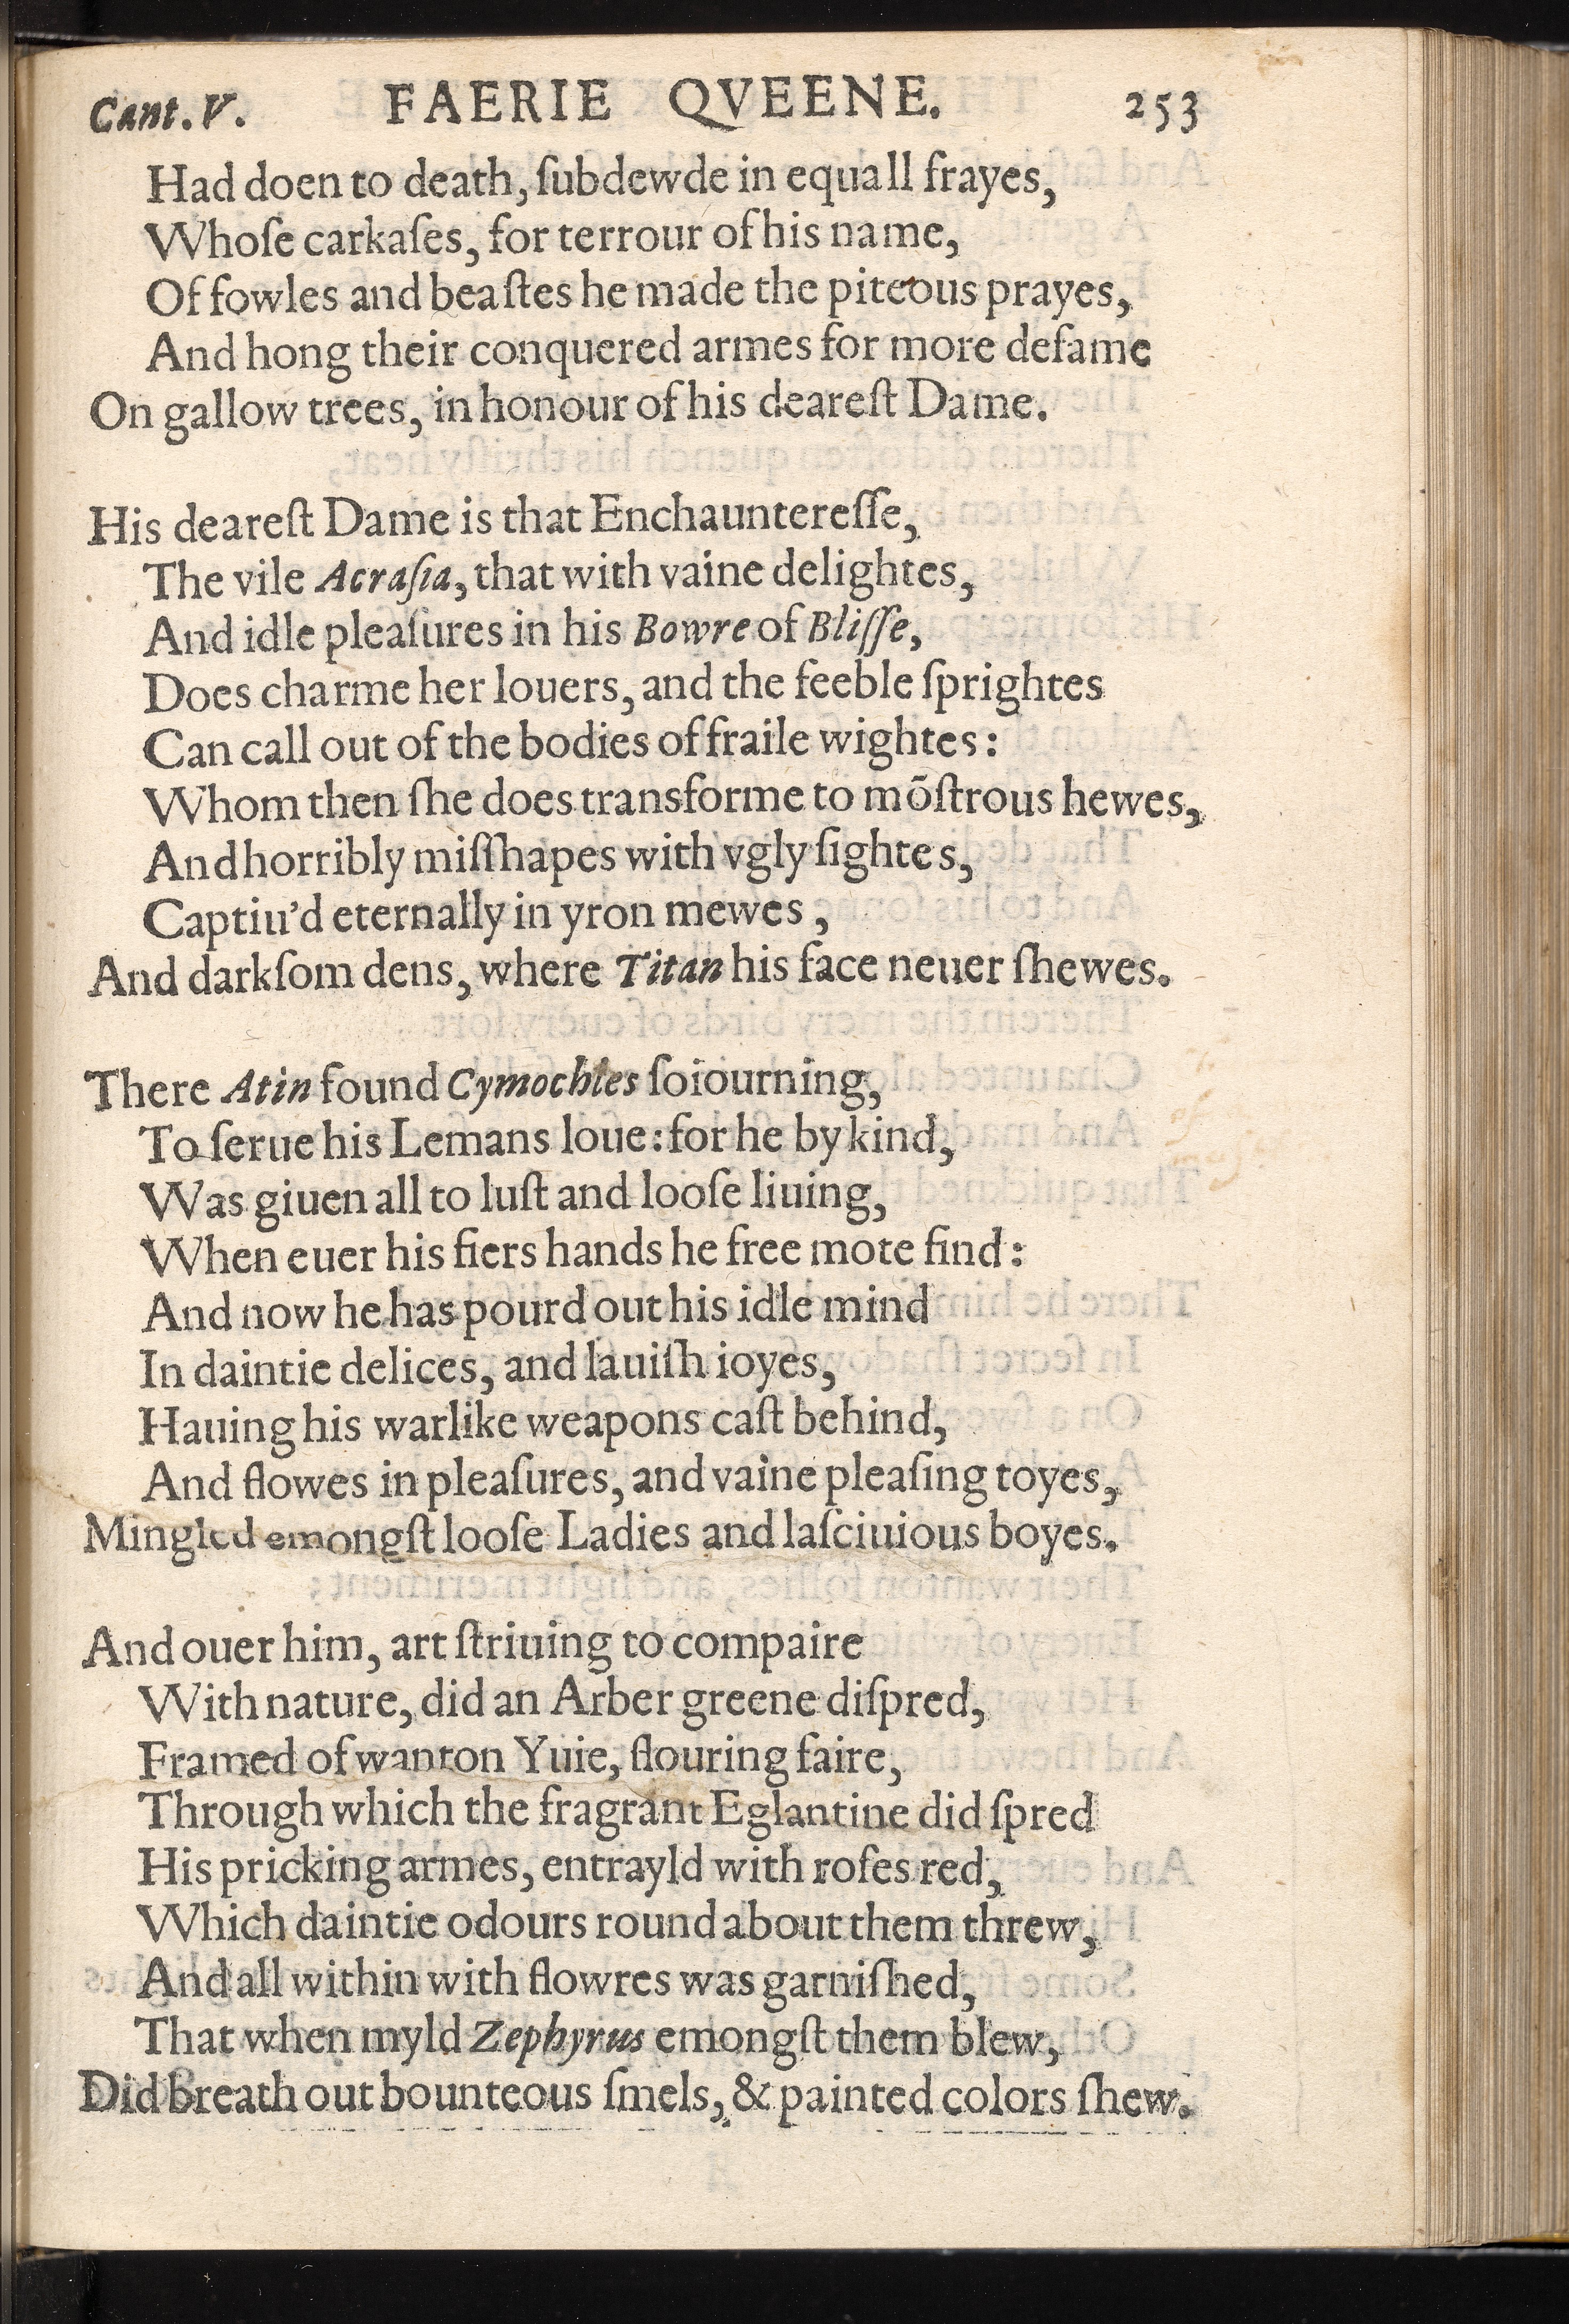 Cant. V. FAERIE QVEENE. 253
Had doen to death, ſubdewde in equall frayes,
Whoſe carkaſes, for terrour of his name,
Of fowles and beaſtes he made the piteous prayes,
And hong their conquered armes for more defame
On gallow trees, in honour of his deareſt Dame.
His deareſt Dame is that Enchauntereſſe,
The vile Acraſia, that with vaine delightes,
And idle pleaſures in his Bowre of Bliſſe,
Does charme her louers, and the feeble ſprightes
Can call out of the bodies of fraile wightes:
Whom then ſhe does transforme to mõſtrous hewes,
And horribly miſſhapes with vgly ſightes,
Captiu'd eternally in yron mewes,
And darkſom dens, where Titan his face neuer ſhewes.
There Atin found Cymochles ſoiourning,
To ſerue his Lemans loue: for he by kind,
Was giuen all to luſt and looſe liuing,
When euer his fiers hands he free mote find:
And now he has pourd out his idle mind
In daintie delices, and lauiſh ioyes,
Hauing his warlike weapons caſt behind,
And flowes in pleaſures, and vaine pleaſing toyes,
Mingled emongſt looſe Ladies and laſciuious boyes.
And ouer him, art ſtriuing to compaire
With nature, did an Arber greene diſpred,
Framed of wanton Yuie, flouring faire,
Through which the fragrant Eglantine did ſpred
His pricking armes, entrayld with roſes red,
Which daintie odours round about them threw,
And all within with flowres was garniſhed,
That when myld Zephyrus emongſt them blew,
Did breath out bounteous ſmels, & painted colors ſhew.